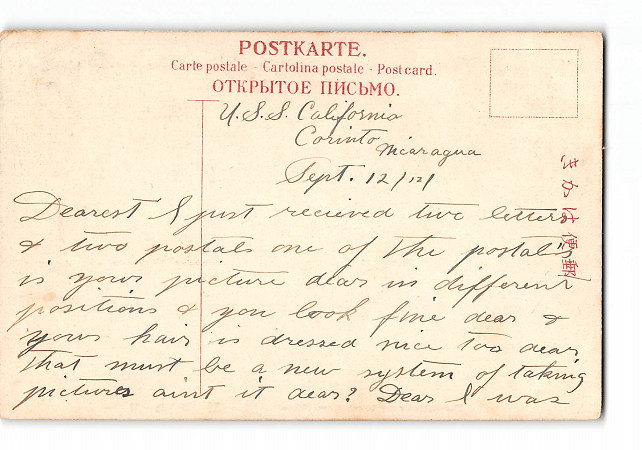 POSTKARTE.
Carte postale - Cartolina postale - Postcard.
ОТКРЫТОЕ ПИСЬМО.
U.S.S. California
Corinto Nicaragua
Sept. 12/12/
きかは便郵
Dearest I just recieved two letters
& two postals one of the postals
is your picture dear in different
positions & you look fine dear &
your hair is dressed nice too dear
that must be a new system of taking
pictures aint it dear? Dear I was